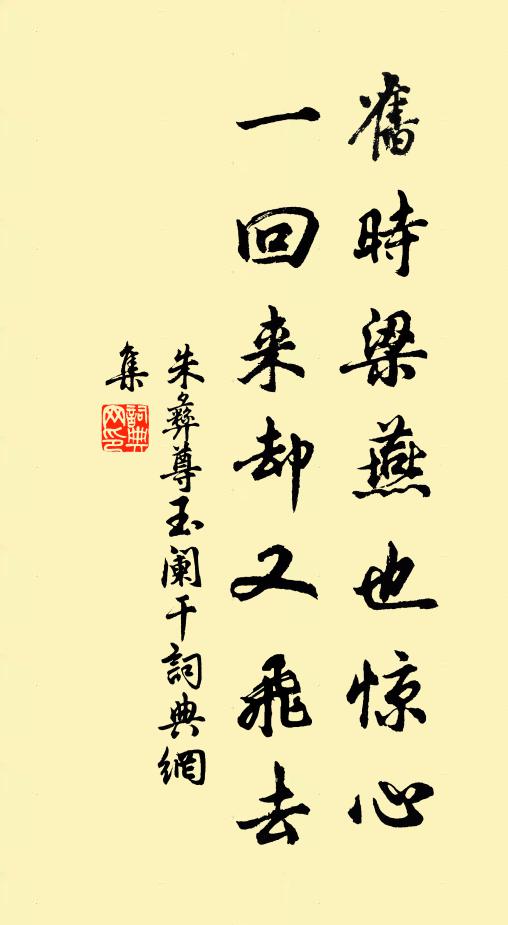 舊時梁燕也惊心
一回来却又飛去
朱彝尊玉阑干詞典網
集
詞典
网印